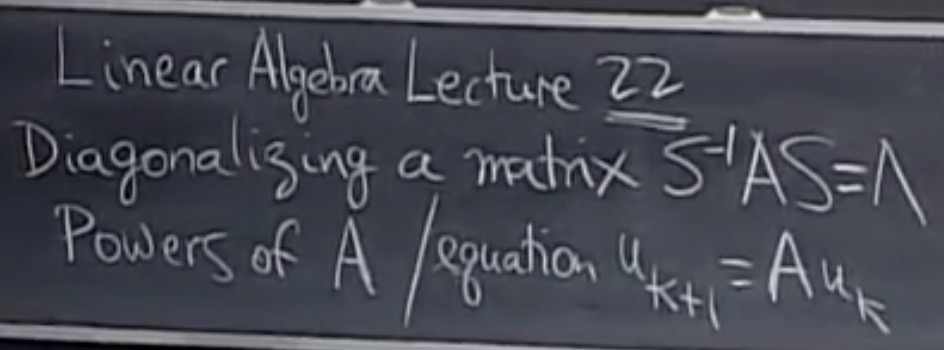 Linear Algebra Lecture 22
Diagonalizing a matrix S⁻¹AS=Λ
Powers of A / equation uₖ₊₁=Auₖ